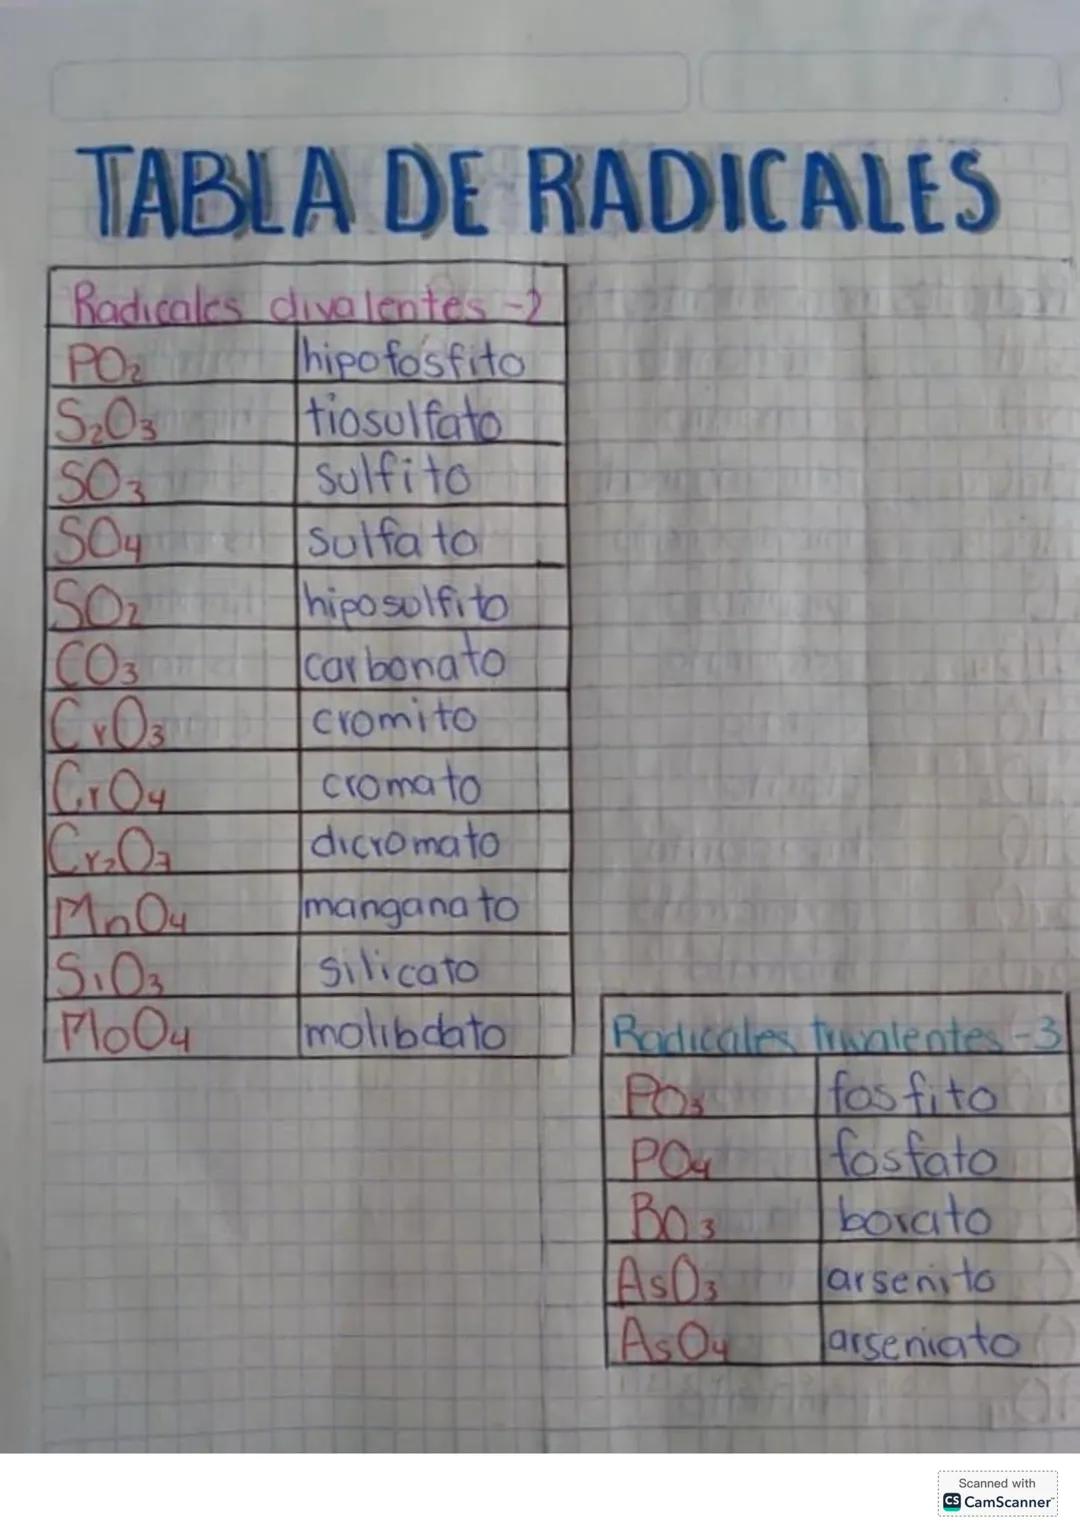 TABLA DE RADICALES
Radicales divalentes -2
PO2 hipofosfito
S2O3 tiosulfato
SO3 sulfito
SO4 sulfato
SO2 hiposulfito
CO3 carbonato
CrO3 cromito
CrO4 cromato
Cr2O7 dicromato
MnO4 manganato
SiO3 silicato
MoO4 molibdato
Radicales trivalentes -3
PO3 fosfito
PO4 fosfato
BO3 borato
AsO3 arsenito
AsO4 arseniato
Scanned with
CS CamScanner